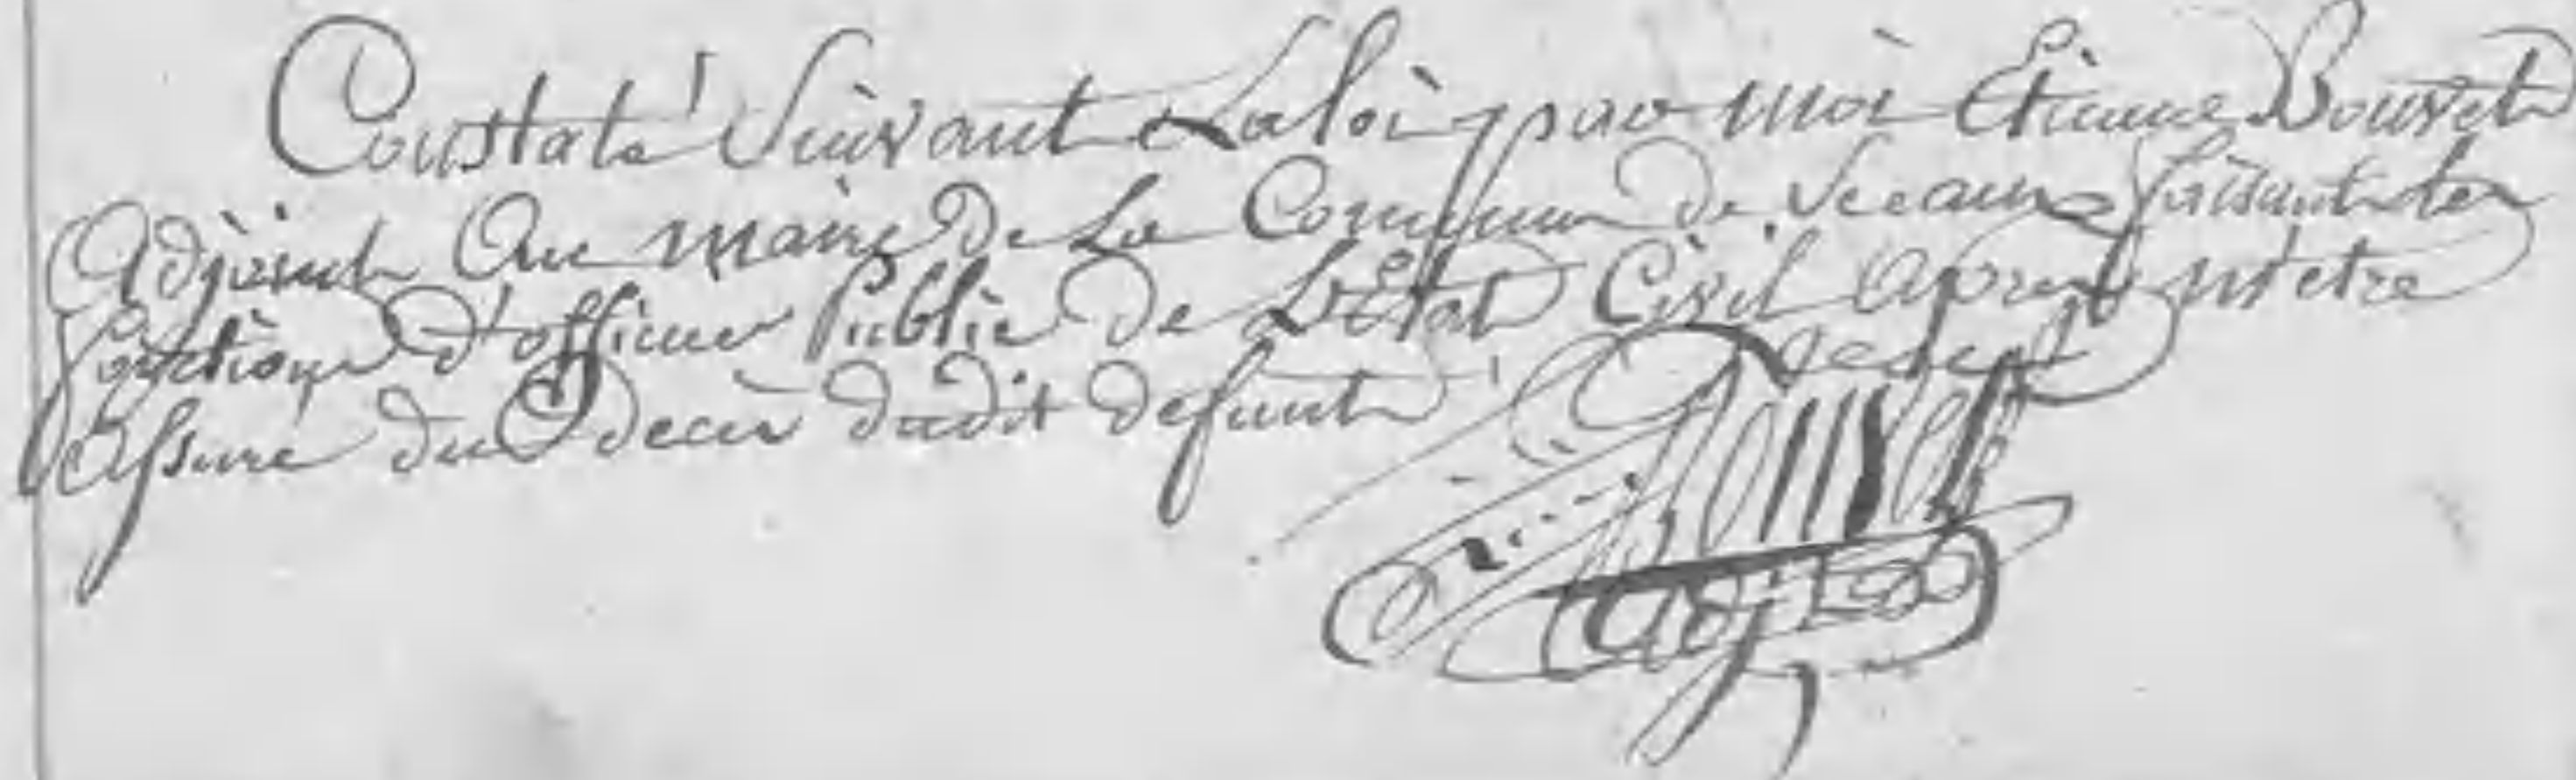 Constaté Suivant La loi par moi Etienne Bouvet
Adjoint Au maire De La Commune De Sceaux faisant les
fonctions d'officier Public De L'Etat Civil Apres m'etre
Assuré du deces dudit defunt
Bouvet
adj